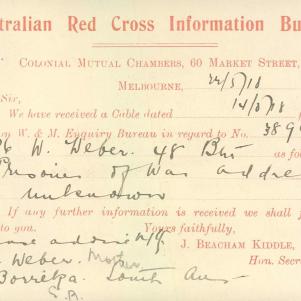 tralian Red Cross Information Bu
COLONIAL MUTUAL CHAMBERS, 60 MARKET STREET,
MELBOURNE, 22/5/18
Sir,
We have received a Cable dated 14/5/18
W. & M. Enquiry Bureau in regard to No. 389
W. Weber. 48 Btn as fo
Prisoner of War addre
unknown
If any further information is received we shall
to you. Yours faithfully,
J. BEACHAM KIDDLE,
Weber. Mother Hon. Secre
Borrika South Aus
S.A.